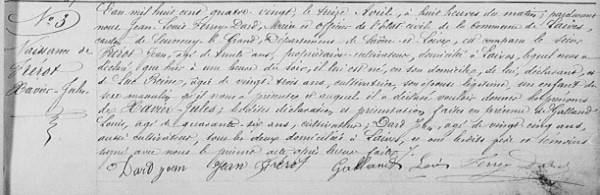 N° 3
Naissance de
Frérot
Xavier Jules
L'an mil huit cent quatre vingt, le treize Avril, à huit heures du matin; pardevant
nous Jean Louis Ferrey Dard, Maire et officier de l'état civil de la Commune de Laives,
canton de Sennecey le Grand, Département de Saône et Loire, est comparu le sieur
Frérot Jean, âgé de trente ans, propriétaire cultivateur, domicilié à Laives, lequel nous a
déclaré que hier à une heure du soir, il lui est né, en son domicile, de lui, déclarant, et
de Reine, âgée de vingt trois ans, cultivatrice, son épouse légitime, un enfant du
sexe masculin qu'il nous a présenté et auquel il a déclaré vouloir donner les prénoms
de Xavier Jules; lesdites déclaration et présentation faites en présence de Galland
Louis, âgé de quarante six ans, cultivateur; Dard, âgé de vingt cinq ans,
aussi cultivateur, tous les deux domiciliés à Laives, et ont lesdits père et témoins
signé avec nous le présent acte après lecture faite.
Dard Jean Frérot Galland Louis Ferrey Dard